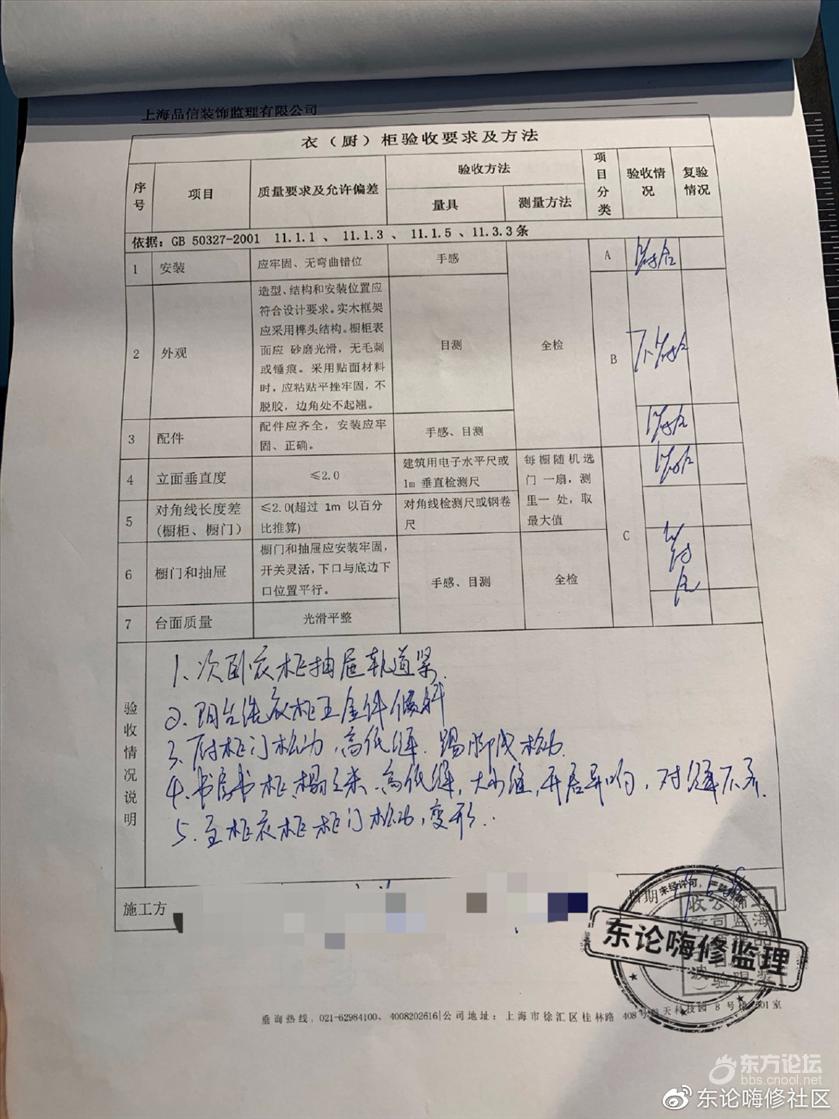 上海品信装饰监理有限公司
衣（厨）柜验收要求及方法
序号 项目 质量要求及允许偏差 验收方法 项目分类 验收情况 复验情况
量具 测量方法
依据：GB 50327-2001 11.1.1 、 11.1.3 、 11.1.5 、11.3.3 条
1 安装 应牢固、无弯曲错位 手感 A 符合
造型、结构和安装位置应
符合设计要求。实木框架
应采用榫头结构。橱柜表
面应 砂磨光滑，无毛刺
2 外观 或锤痕。采用贴面材料 目测 全检 B 不符合
时，应粘贴平挫牢固，不
脱胶，边角处不起翘。
3 配件 配件应齐全，安装应牢 手感、目测 符合
固、正确。
4 立面垂直度 ≤2.0 建筑用电子水平尺或 每橱随机选 符合
1m 垂直检测尺 门 一扇，测
5 对角线长度差 ≤2.0(超过 1m 以百分 对角线检测尺或钢卷 里一 处，取
(橱柜、橱门) 比推算) 尺 最大值 C
橱门和抽屉应安装牢固，
6 橱门和抽屉 开关灵活，下口与底边下 手感、目测 全检 符合
口位置平行。
7 台面质量 光滑平整
验收情况说明
1、次卧衣柜抽屉轨道紧
2、阳台洗衣柜五金件倾斜
3、厨柜门松动，高低缝 踢脚线松动
4、书房书柜 高低缝，大小缝，开启异响，对缝不齐.
5、主柜衣柜柜门松动，变形.
施工方 日期
未经许可，严禁
东论嗨修监理
垂询热线，021-62984100、4008202616|公司地址：上海市徐汇区桂林路 408号 天科技园 8 号 301室
东方论坛
bbs.cnool.net
东论嗨修社区